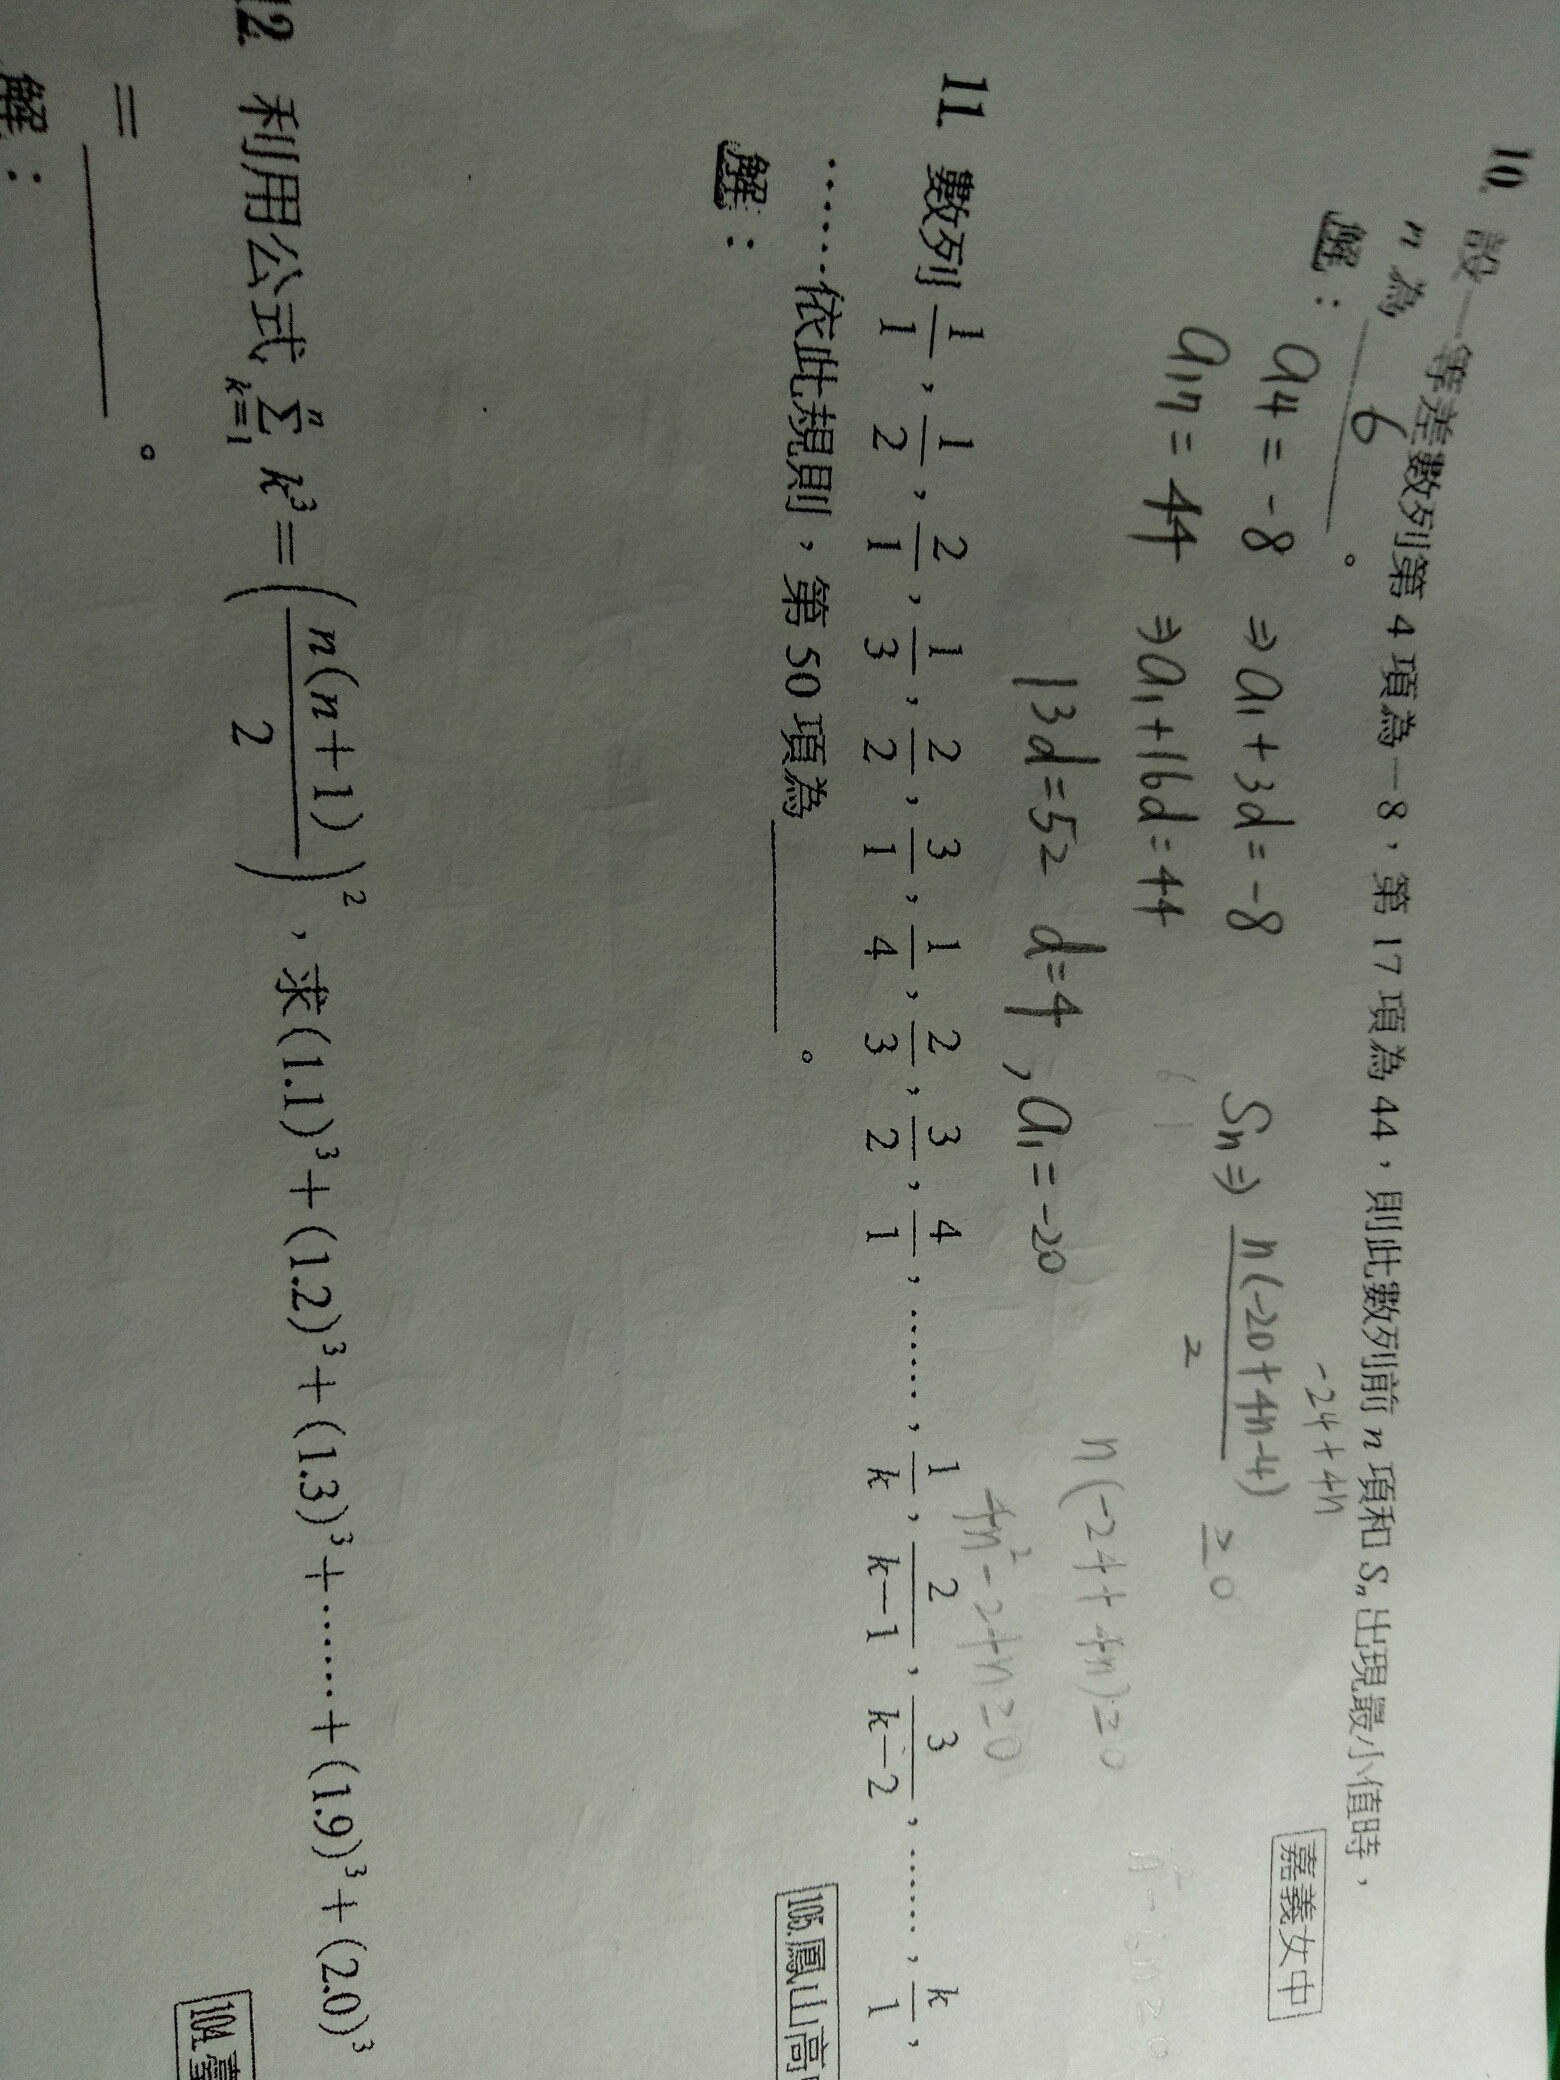 10. 設一等差數列第 4 項為 -8，第 17 項為 44，則此數列前 n 項和 Sₙ 出現最小值時，
n 為 6 。
嘉義女中
解：
a4 = -8 ⇒ a₁ + 3d = -8
a17 = 44 ⇒ a₁ + 16d = 44
13d = 52 d = 4 , a₁ = -20
-24 + 4n
Sn ⇒ n(-20+4n-4) / 2 ≥ 0
n(-24 + 4n) ≥ 0
4n² - 24n ≥ 0
11. 數列 1/1，1/2，2/1，1/3，2/2，3/1，1/4，2/3，3/2，4/1，……，1/k，2/(k-1)，3/(k-2)，……，k/1，
……依此規則，第 50 項為 ______。
105.鳳山高
解：
12. 利用公式 ∑ₖ₌₁ⁿ k³ = (n(n+1)/2)²，求(1.1)³ + (1.2)³ + (1.3)³ + …… + (1.9)³ + (2.0)³
= ______。
104.
解：